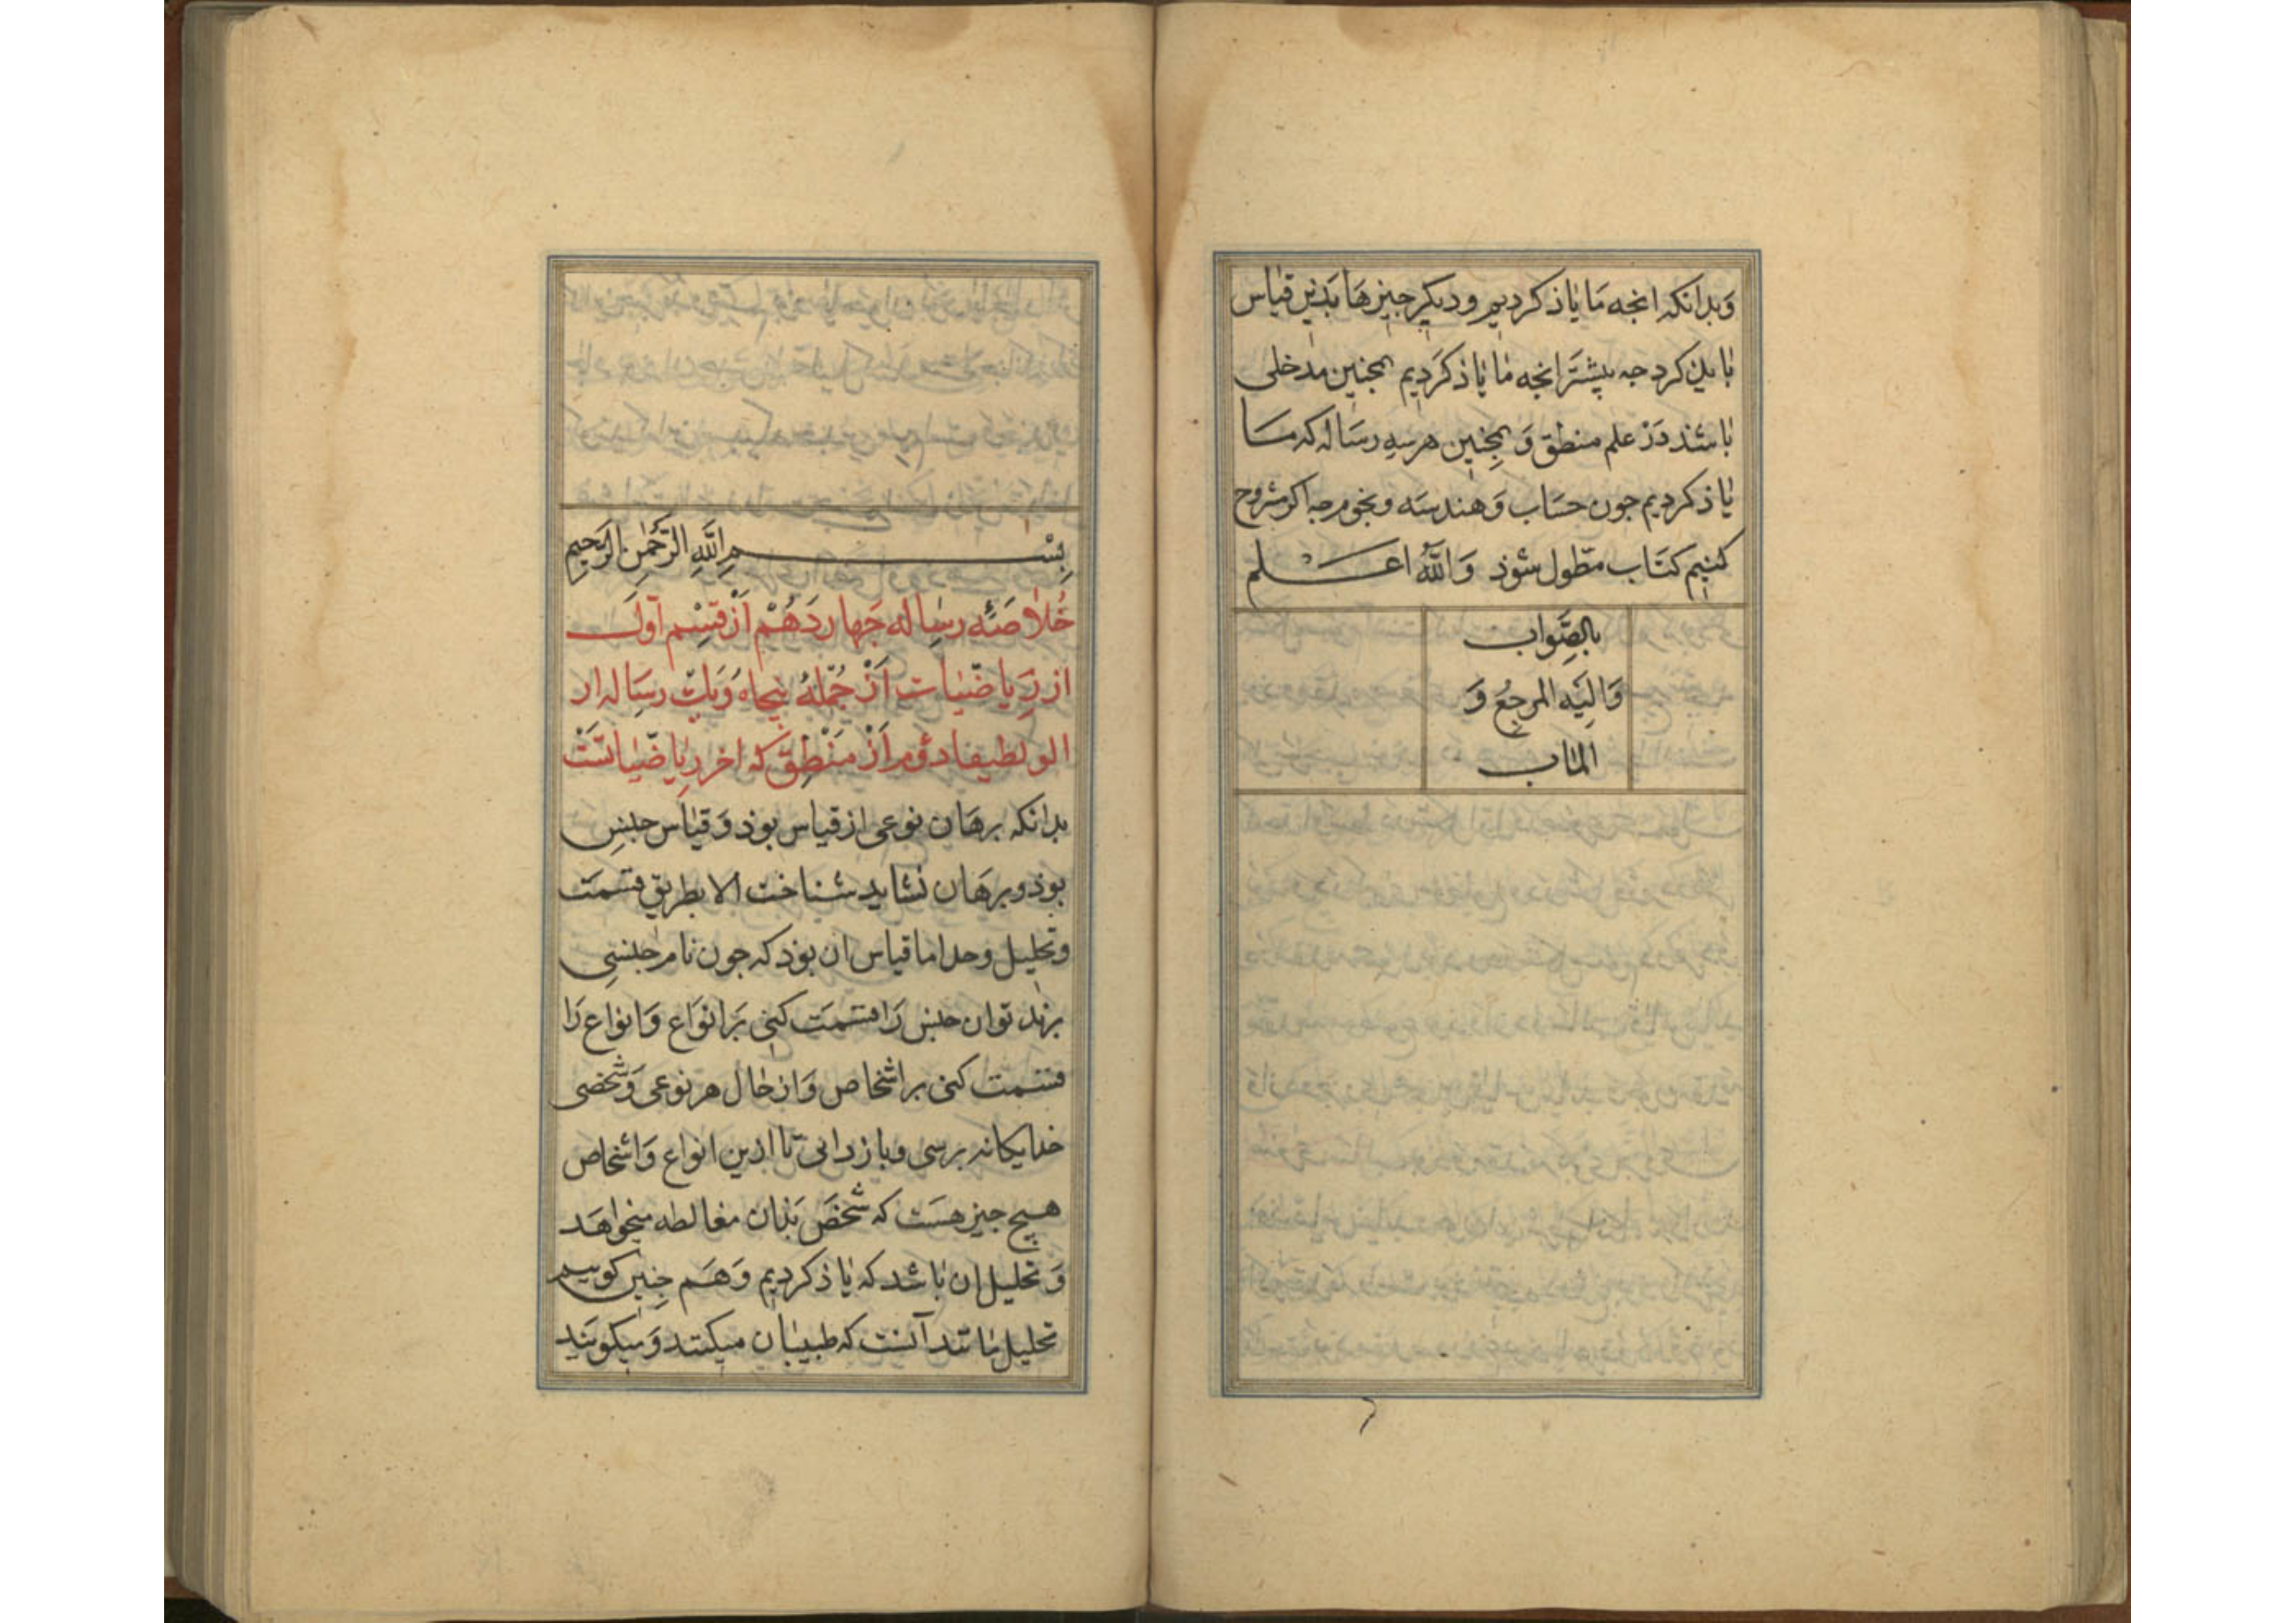 وَبدانکه انجه مَا یاذ کردیم و دیکر جیزهَا بَذین قیاس
بایذ کرد جه بیشتَر انجه ما یاذ کَردیم همجنین مدخلی
باشذ دَرْ علم منطق وَ همجنین هر سه رسَاله که مَا
یاذ کردیم جون حسَاب وَ هندسَه و نجوم جه اکر مشروح
کنیم کتَاب مطّول شوذ وَاللّٰهُ اعلم
بالصَّواب
وَالَیه المرجعُ وَ
الماب
بِسْمِ اللَّهِ الرَّحْمٰنِ الرَّحِيمِ
خُلاصَهٔ رسٰاله جَهاردَهُمْ اَزْ قِسْم اَوّل
از رِیاضیٰات اَزْ جُمْلهٔ پنجاه وُ یک رسَاله از
دؤم اَزْ مَنْطِقْ که اخر رِیاضیٰاتَسْت
بدانکه برهَان نوعی از قیاس بوذ وَ قیاس جنسِ
بوذ و برهَان نشاید شناخت الا بطریق قسمَت
و تحلیل و حد اما قیاس ان بوذ که جون نام جنسی
برند توان جنس رَا قسمَت کنی بَر انوَاع وَ انواع رَا
قسمت کنی بر اشخاص وَ از حٰال هر نوعی وَ شخصی
جدایکانه برسی و باز دانی تا ازین انواع وَ اشخاص
هیچ جیز هسَت که شخصَ بَذان مغالطه میخواهَد
وَ تحلیل ان باشد که یاذ کردیم وَ هَم جنین کوییم
تحلیل مانند آنست که طبیبٰان میکنند وَ میکویَند